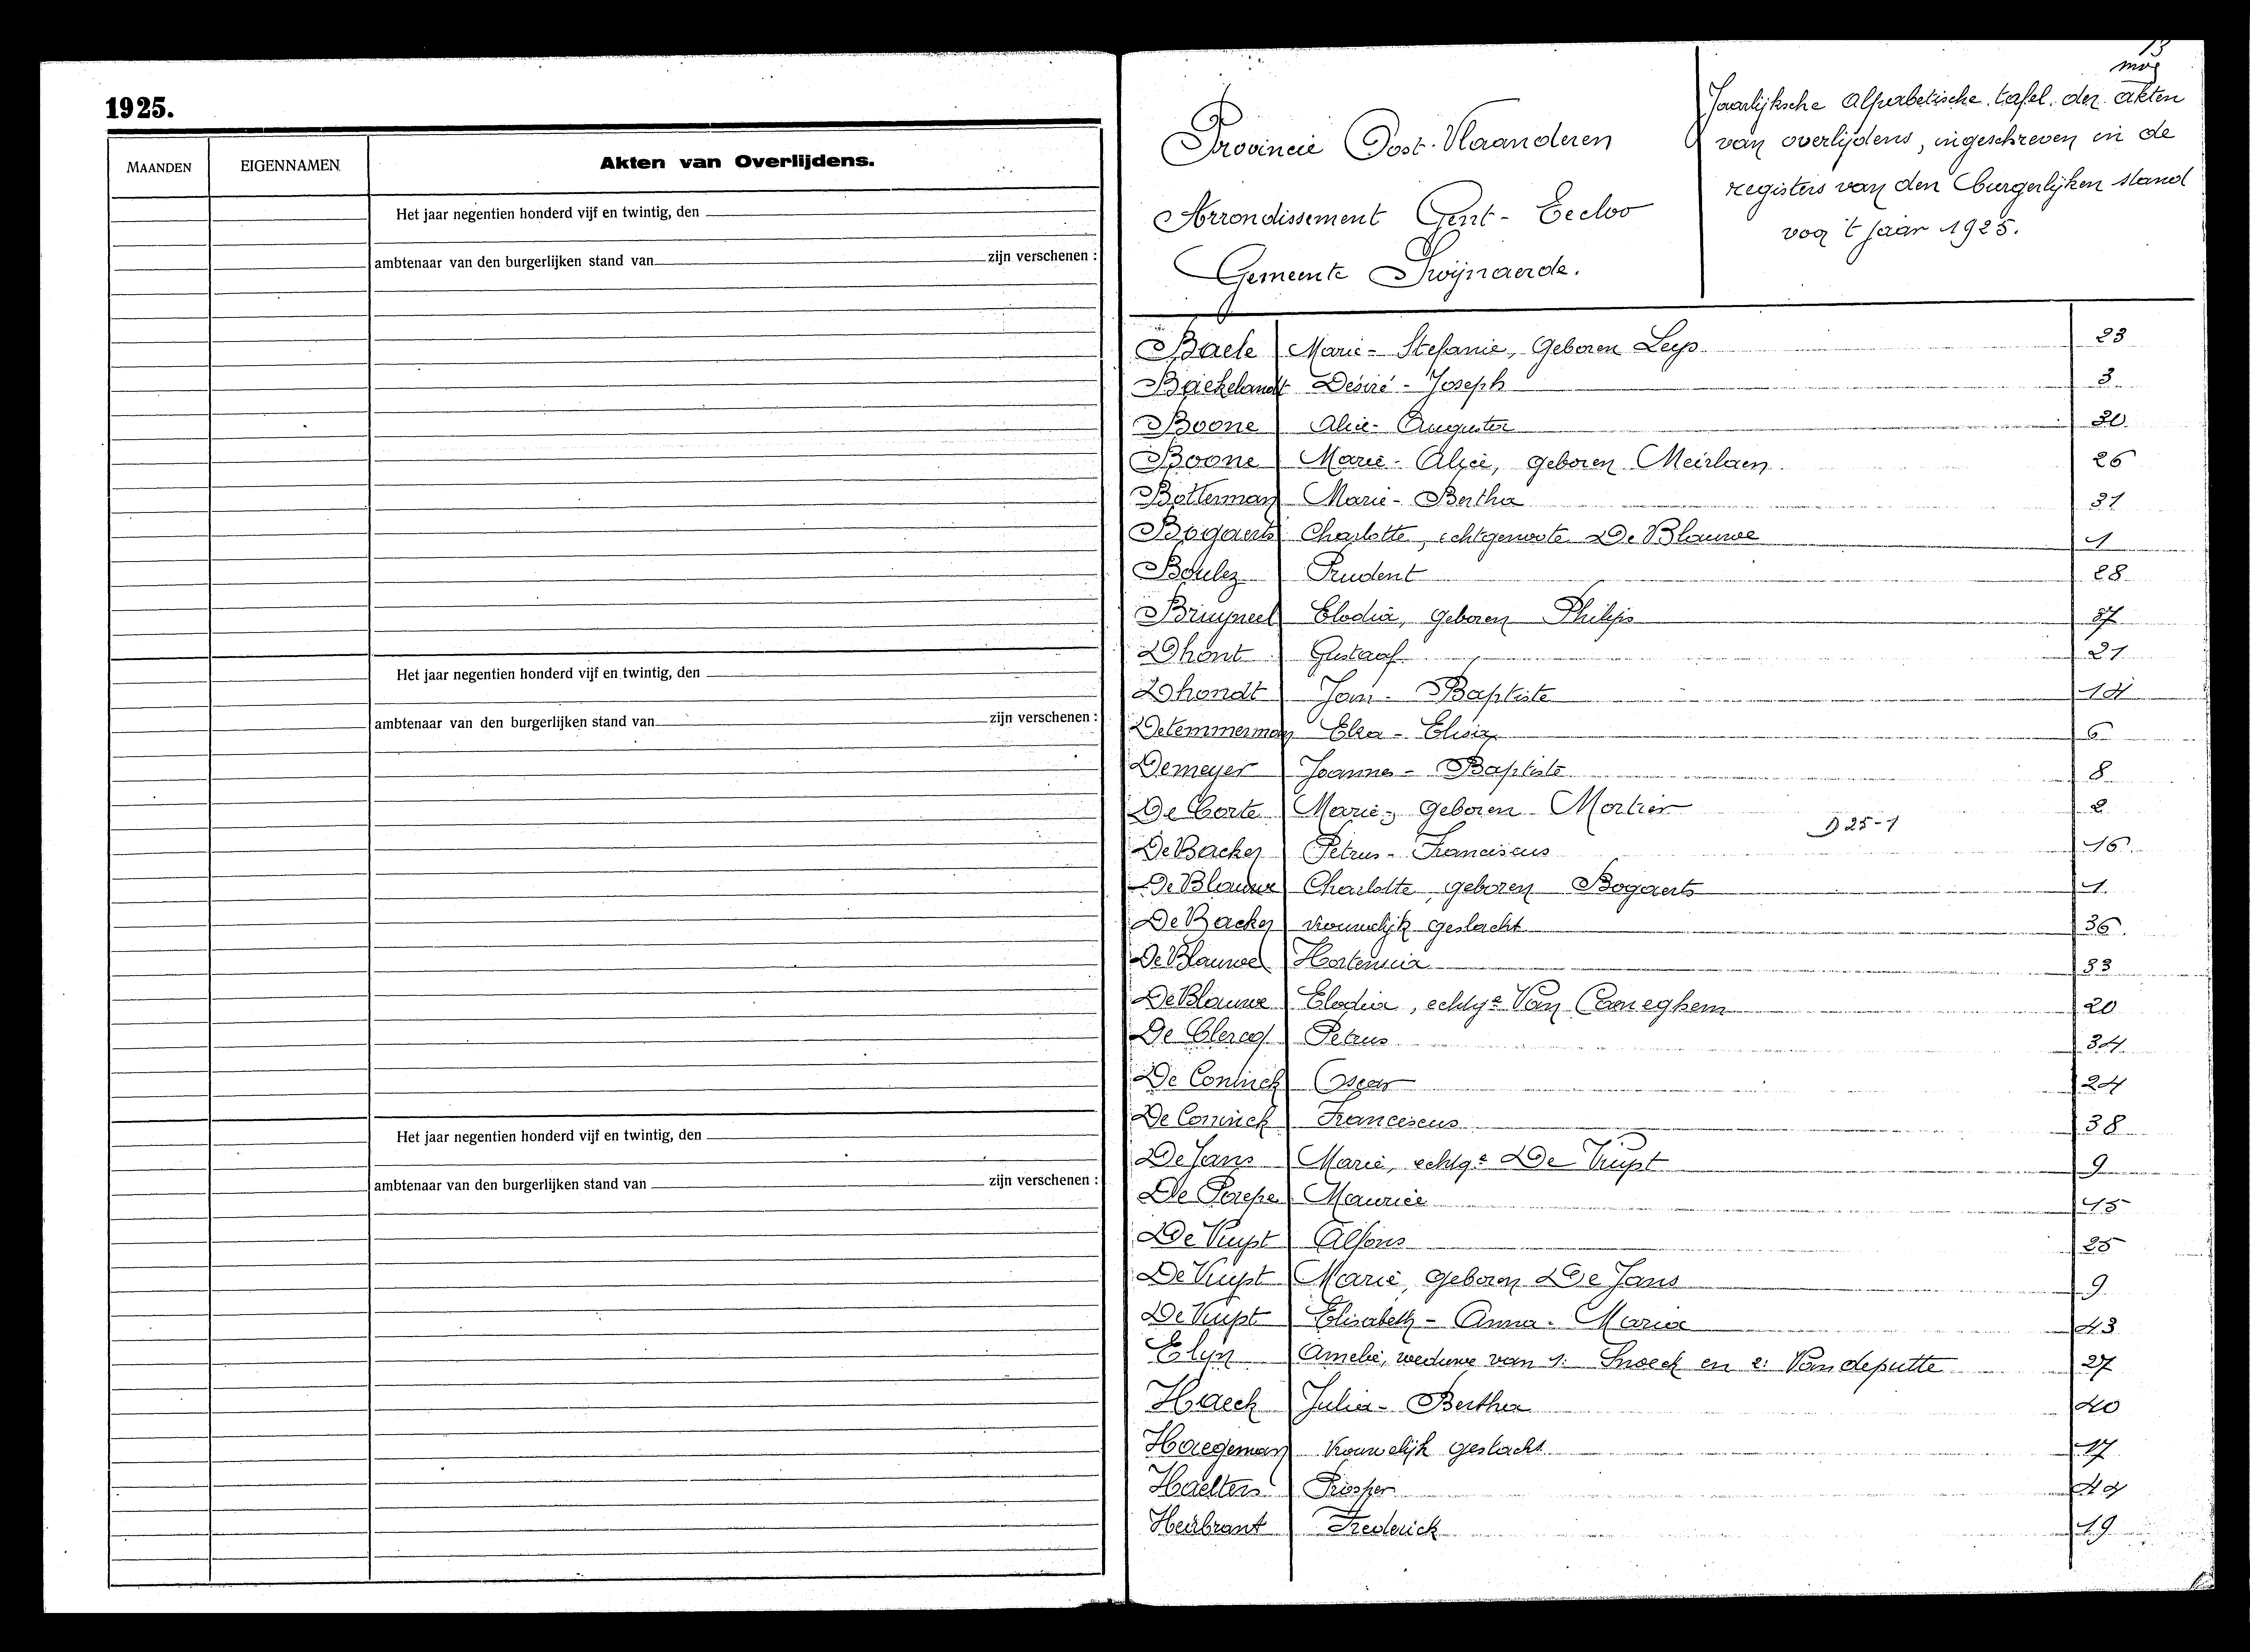 1925.
MAANDEN EIGENNAMEN Akten van Overlijdens.
Het jaar negentien honderd vijf en twintig, den
ambtenaar van den burgerlijken stand van zijn verschenen :
Het jaar negentien honderd vijf en twintig, den
ambtenaar van den burgerlijken stand van zijn verschenen :
Het jaar negentien honderd vijf en twintig, den
ambtenaar van den burgerlijken stand van zijn verschenen :
13
Provincie Oost-Vlaanderen
Arrondissement Gent - Eecloo
Gemeente Swijnaerde.
Jaarlijksche Alphabetische tafel der akten
van overlijdens, ingeschreven in de
registers van den burgerlijken stand
voor 't jaar 1925.
Baele Marie - Stefanie, Geboren Leys 23
Baekelandt Desiré - Joseph 3
Boone Alice - Augusta 30
Boone Marie - Alice, geboren Meirlaen 26
Botterman Marie - Bertha 31
Bogaerts Charlotte, echtgenoote De Blauwe 1
Boulez Prudent 28
Bruyneel Elodia, geboren Philips 37
Dhont Gustaaf 21
Dhondt Jan - Baptiste 14
Detemmerman Elza - Elisa 6
Demeyer Joannes - Baptiste 8
De Corte Marie, geboren Mortier 2
D 25-1
De Backer Petrus - Franciscus 16
De Blauwe Charlotte, geboren Bogaerts 1
De Backer vrouwelijk geslacht 36
De Blauwe Hortensia 33
De Blauwe Elodia, echtge Van Caneghem 20
De Clercq Petrus 34
De Coninck Oscar 24
De Coninck Franciscus 38
De Jans Marie, echtge De Vuyst 9
De Paepe Maurice 15
De Vuyst Alfons 25
De Vuyst Marie, geboren De Jans 9
De Vuyst Elisabeth - Anna - Maria 43
Elyn Amelie, weduwe van 1: Snoeck en 2: Vandeputte 27
Haeck Julia - Bertha 40
Haegeman Vrouwelijk geslacht 17
Haelters Prosper
Heirbrant Frederick 19